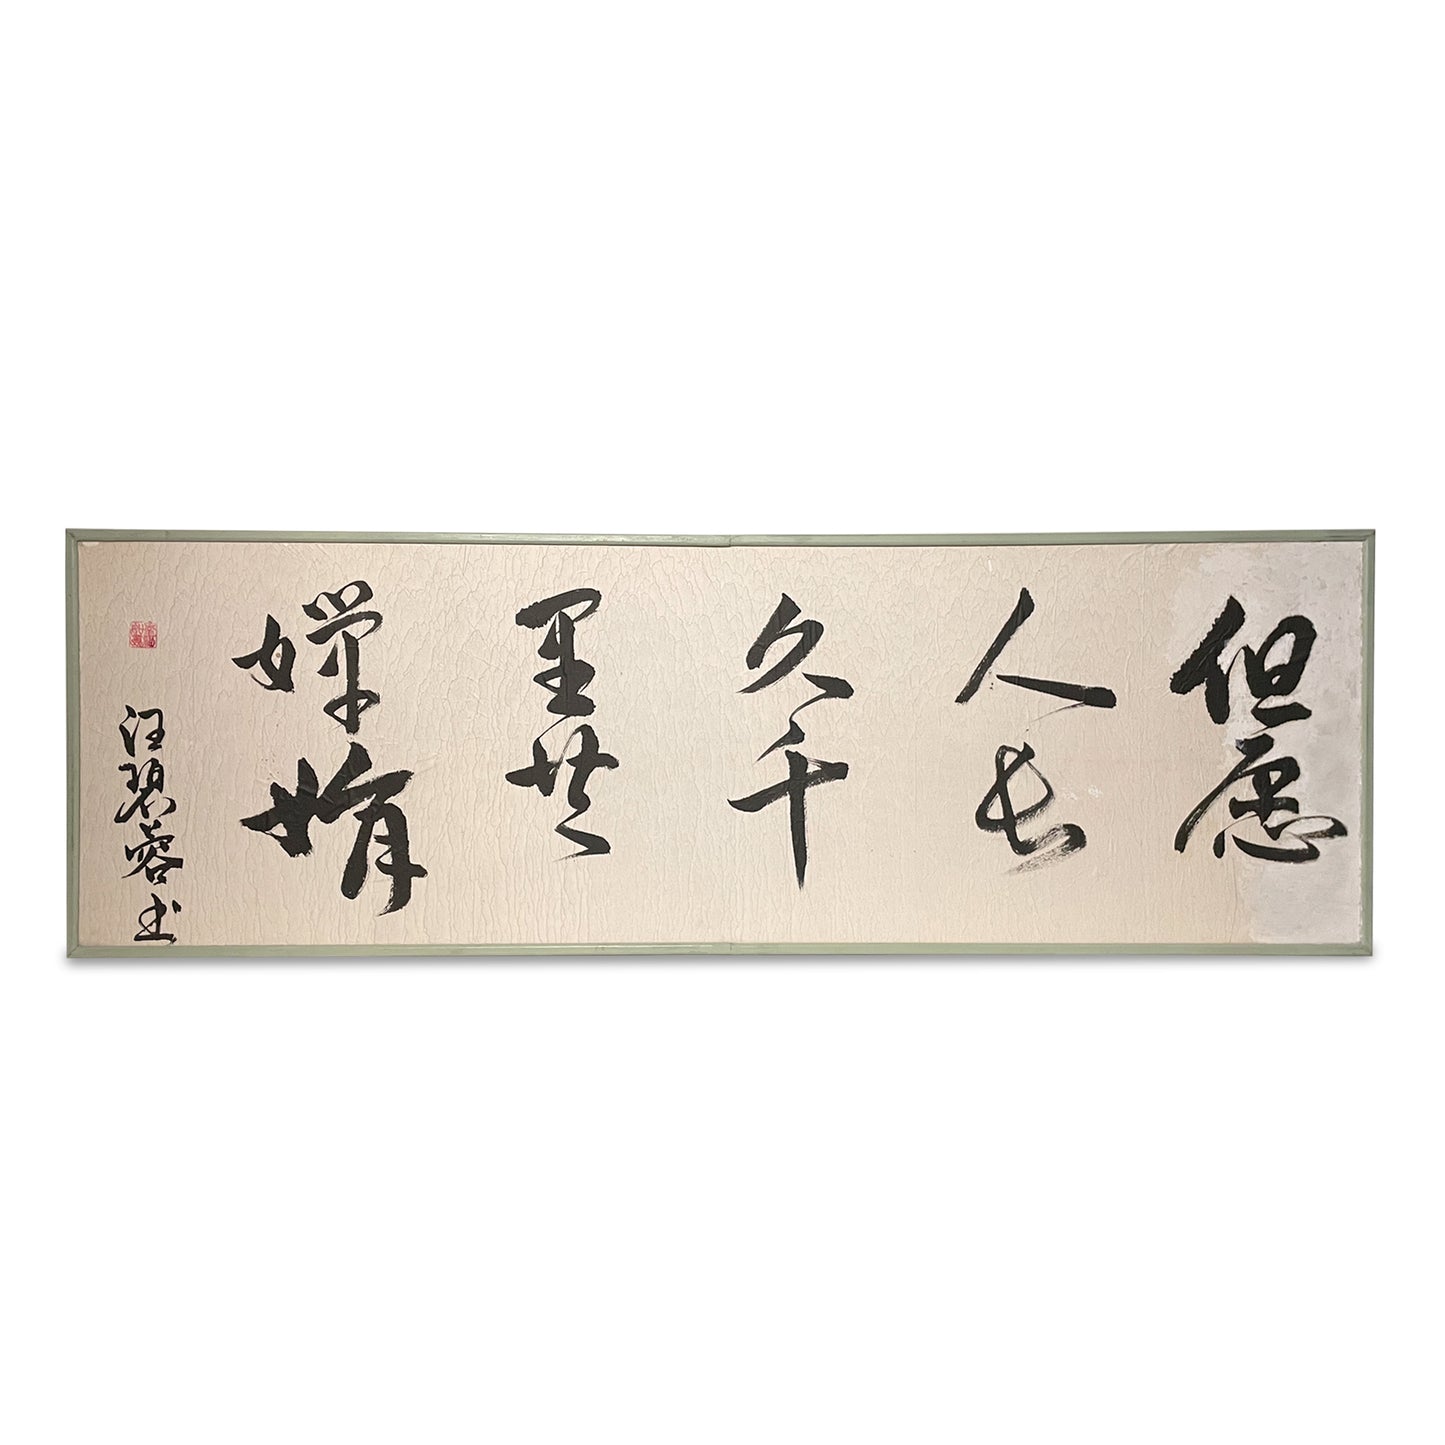 但愿
人长
久千
里共
婵娟
汪碧蓉书